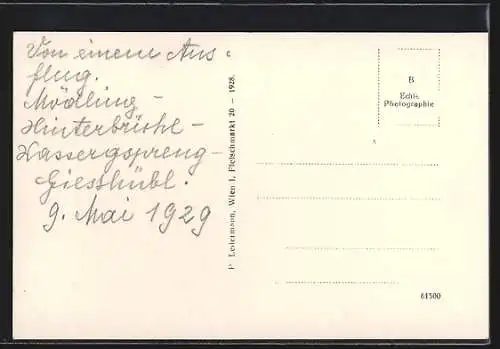 Von einem Aus-
flug.
Mödling -
Hinterbrühl -
Wassergspreng -
Giesshübl.
9. Mai 1929
P. Ledermann, Wien I, Fleischmarkt 20 — 1928.
B
Echte
Photographie
61500